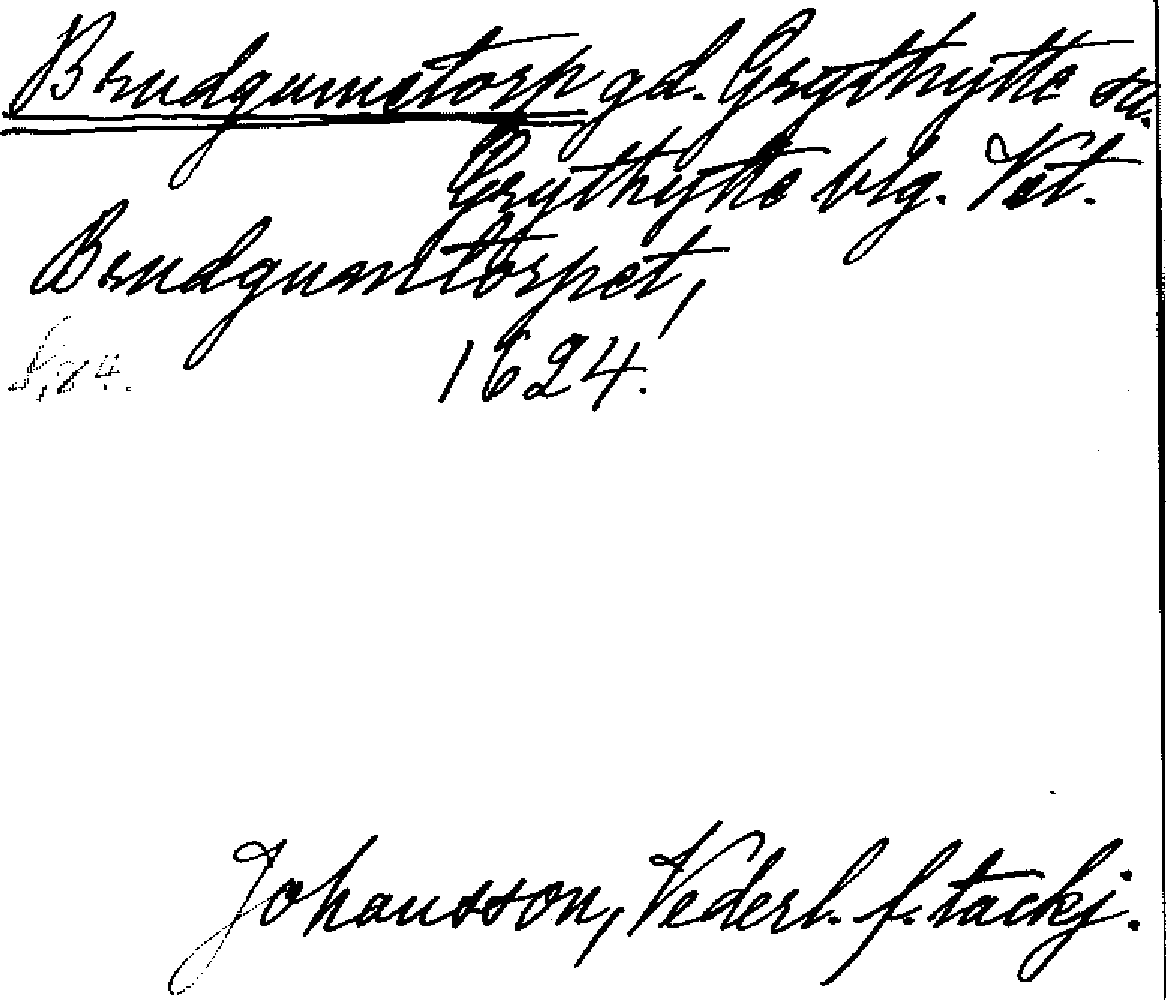 Brudgumstorp gd. Grythytte sn.
Grythytte blg. Vst.
Brudgumtorpet,
1624.
S. 84.
Johansson, Vederl. f. tackj.